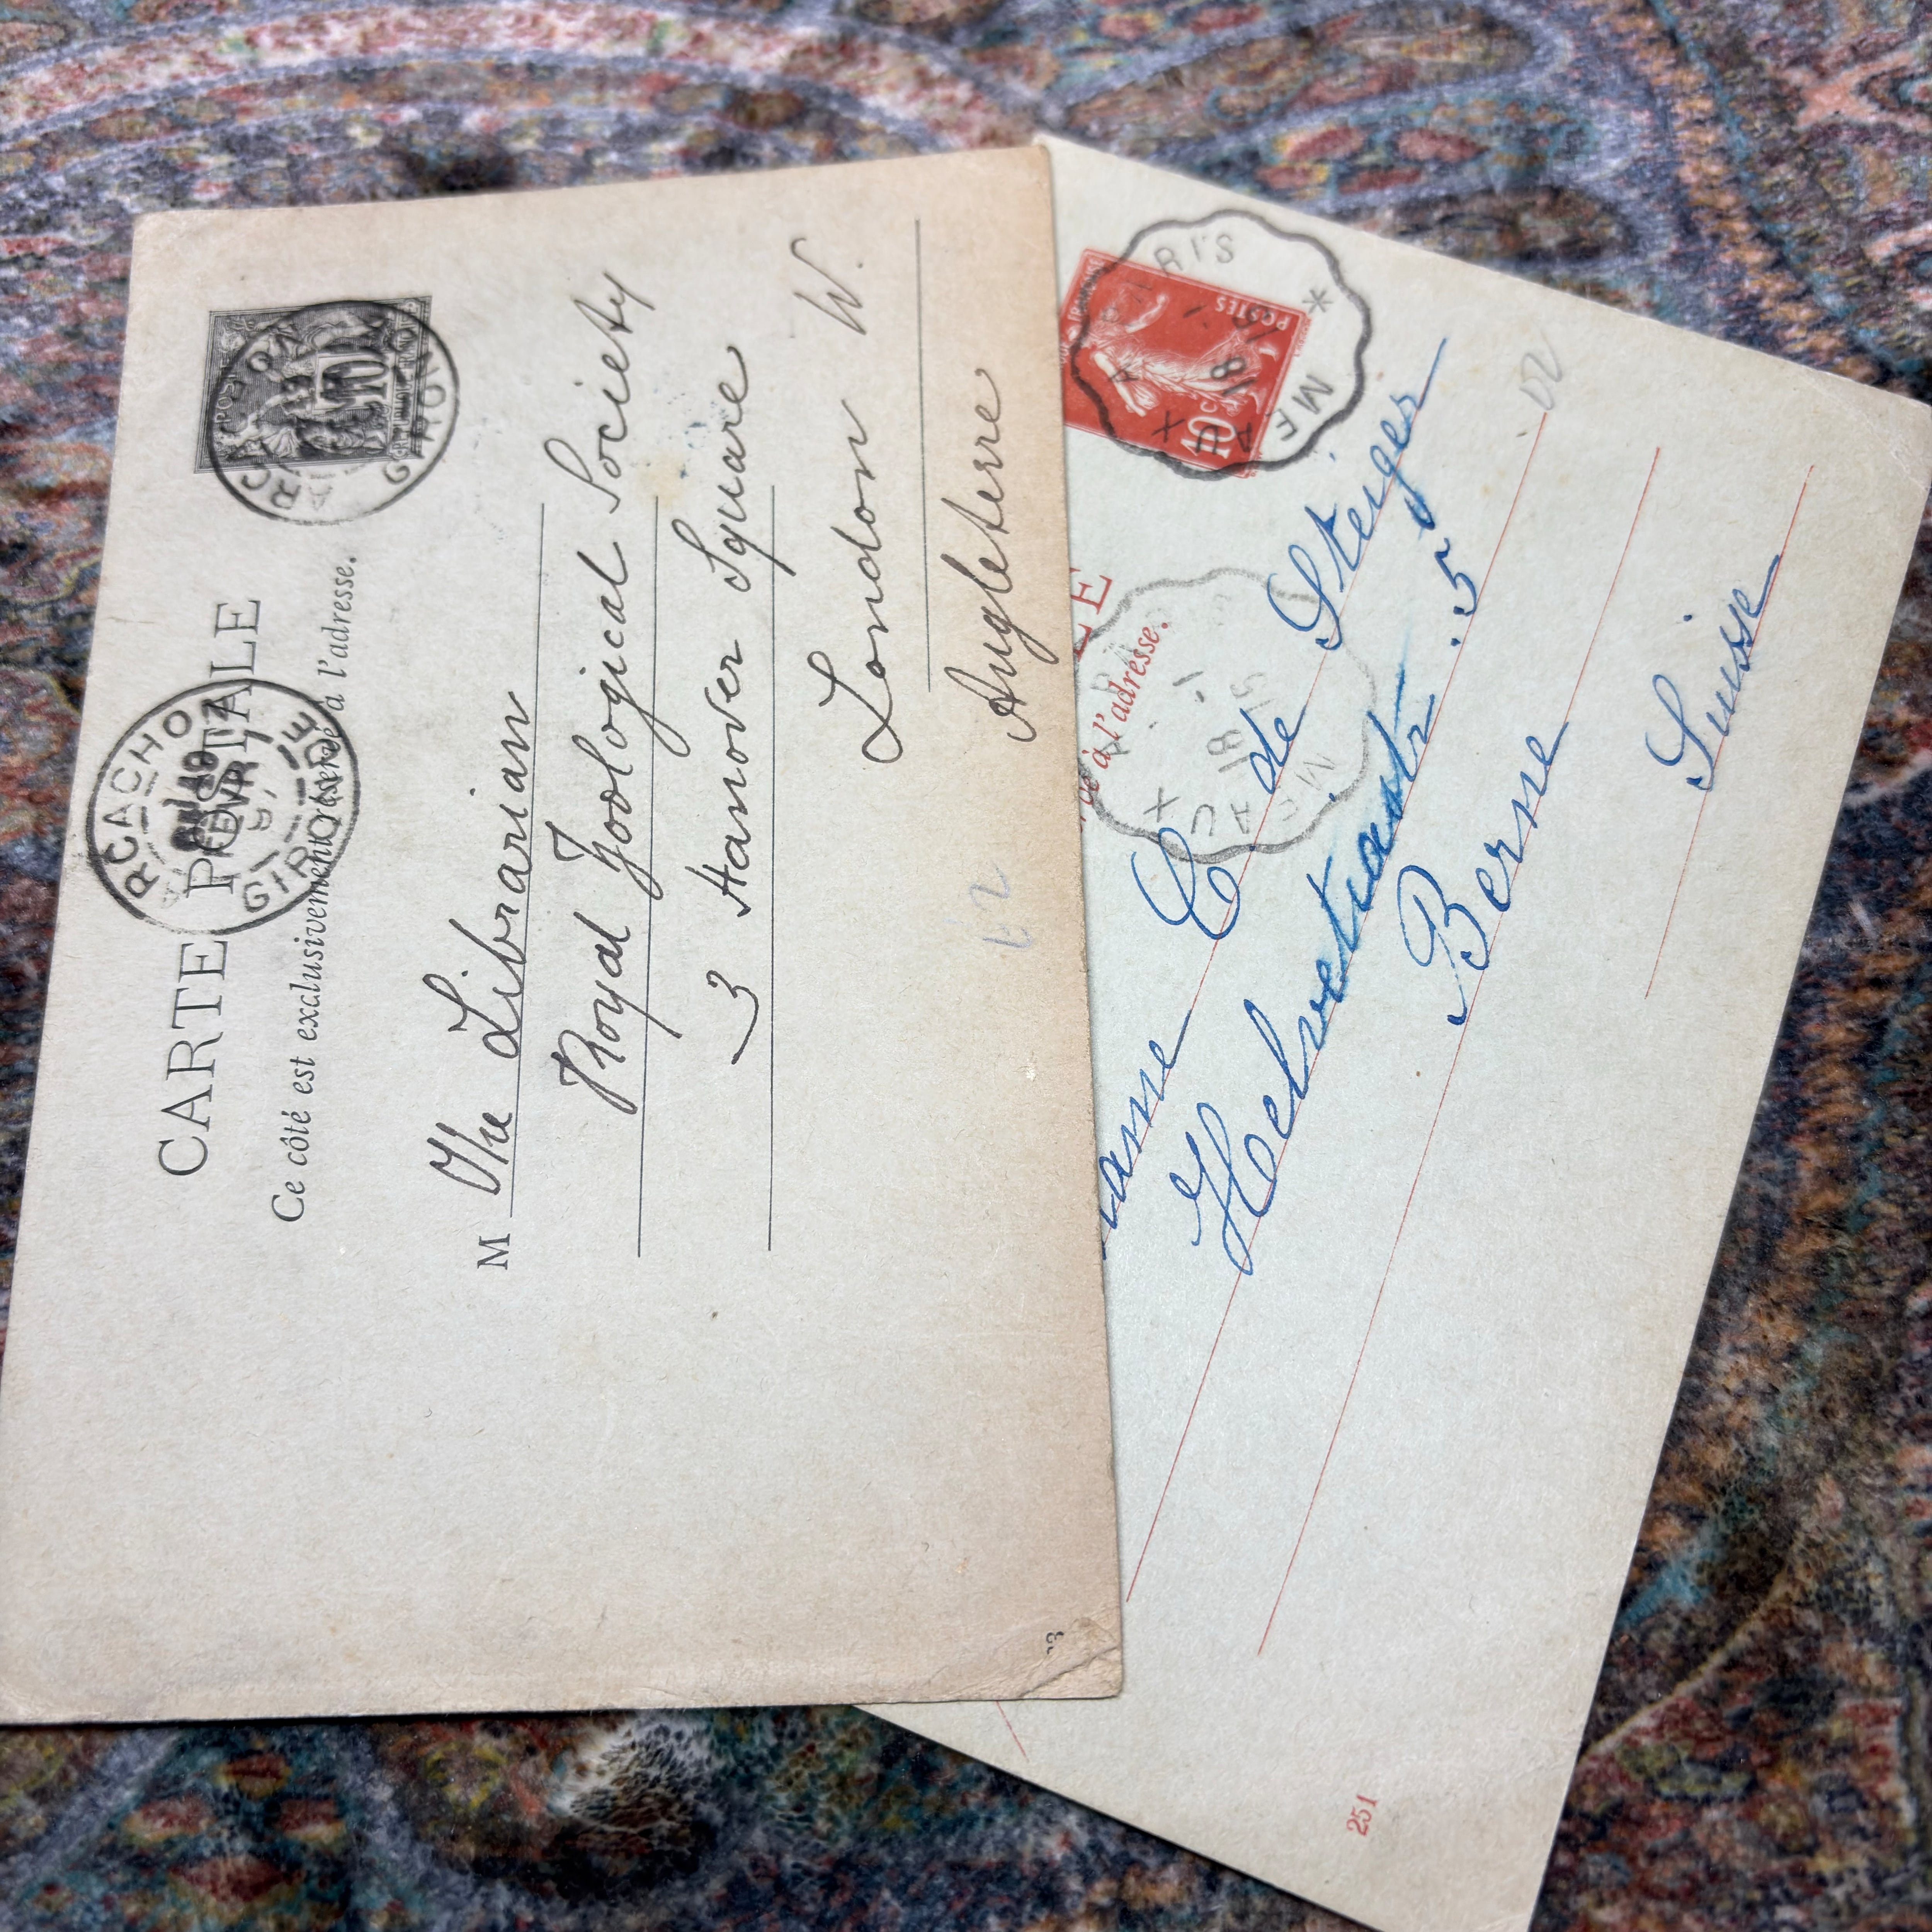 CARTE POSTALE
Ce côté est exclusivement réservé à l'adresse.
RCACHON
GIRONDE
RCACHON
GIRONDE
M The Librarian
Royal Zoological Society
3 Hanover Square
London W.
Angleterre
12
3
POSTES
10c
RIS
18
MEAUX
LE
à l'adresse.
18
MEAUX
ame C. de Steiger
Helvetiastr. 5
Berne
Suisse
251